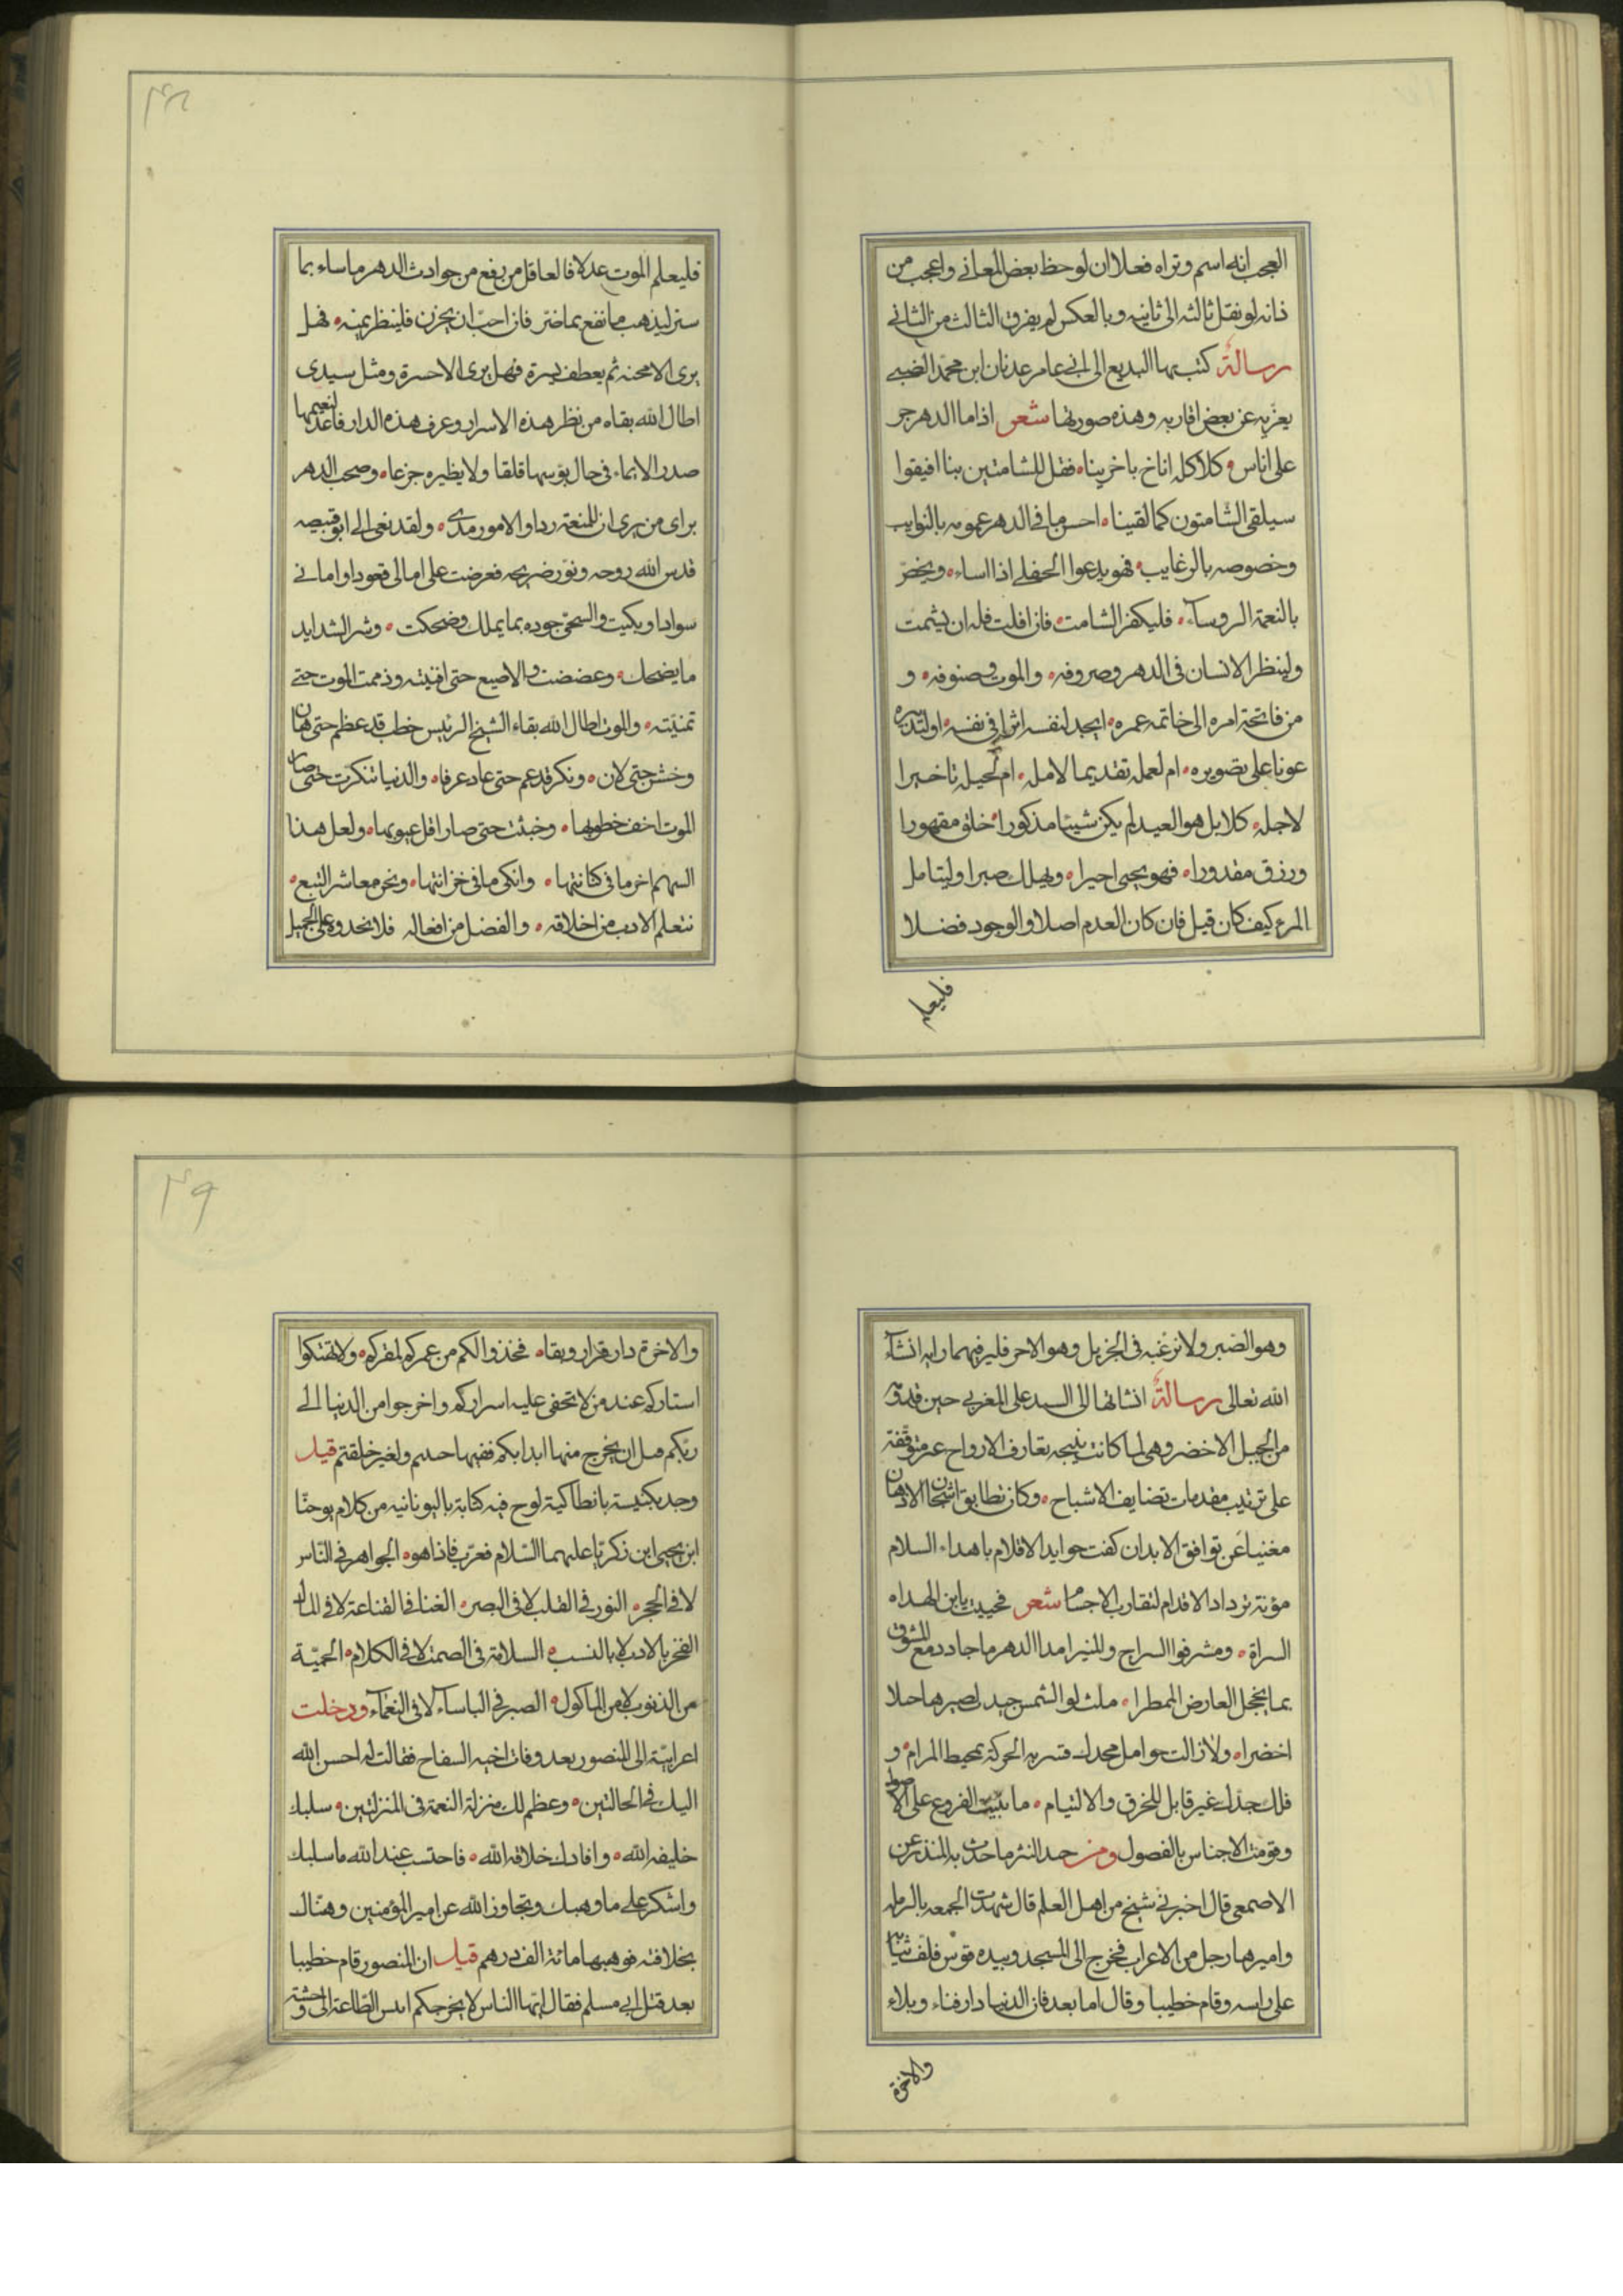 العجب انه اسم وتراه فعلا ان لوحظ بعض المعاني واعجب من
ذا انه لو نقل ثالثه الى ثانيه وبالعكس لم يفرق الثالث من الثاني
رسالة كتب بها البديع الى ابي عامر عدنان ابن محمد الضبي
يعزيه عن بعض اقاربه وهذه صورتها شعر اذا ما الدهر جر
على اناس كلاكله اناخ باخرينا فقل للشامتين بنا افيقوا
سيلقى الشامتون كما لقينا احسن ما في الدهر عمومه بالنوايب
وخصوصه بالرغايب فهو يدعوا الجفلى اذا اساء ويخص
بالنعمة الروسآء فليفكر الشامت فان افلت فله ان يشمت
ولينظر الانسان في الدهر وصروفه والموت وصنوفه و
من فاتحة امره الى خاتمه عمره ايجد لنفسه اثرا في نفسه او لتدبيره
عونا على تصويره ام لعمله تقديما لامله ام لحيله تاخيرا
لاجله كلا بل هو العبد لم يكن شيئا مذكورا خلق مقهورا
ورزق مقدورا فهو يحيى اجبرا ويهلك صبرا وليتامل
المرء كيف كان قبل فان كان العدم اصلا والوجود فضلا
فليعلم
فليعلم الموت عدلا فالعاقل من رفع من حوادث الدهر ما ساء بما
سر ليذهب ما نفع بما ضر فان احب ان يحزن فلينظر يمنه فهل
يرى الا محنه ثم يعطف يسرة فهل يرى الا حسرة ومثل سيدى
اطال الله بقاه من نظر هذه الاسرار وعرف هذه الدار فاعد لنعيمها
صدرا لا يملاه في حال بؤسها قلقا ولا يطيره جزعا وصحب الدهر
براى من يرى ان للمتعة ردا وللامور مدى ولقد نعى الى ابو قبيصه
قدس الله روحه ونور ضريحه فعرضت على امالى قعودا وامانى
سوادا وبكيت والسخى جوده بما يملك وضحكت وشر الشدايد
ما يضحك وعضضت الاصبع حتى افنيته وذممت الموت حتى
تمنيته والموت اطال الله بقاء الشيخ الرئيس خطب قد عظم حتى هان
وخشن حتى لان ونكر قد عم حتى عاد عرفا والدنيا تنكرت حتى صار
الموت اخف خطوبها وخبثت حتى صار اقل عيوبها ولعل هذا
السهم اخر ما في كنانتها وانكى ما في خزانتها ونحن معاشر التبع
نتعلم الادب من اخلاقه والفضل من افعاله فلا نحدوه على الجميل
وهو الصبر ولا نرغبه في الجزيل وهو الاجر فلير فيهما رايه انشآء
الله تعالى رسالة انشاتها الى السيد على المغربي حين قدومه
من الجبل الاخضر وهى لما كانت نتيجه تعارف الارواح غير متوقفة
على ترتيب مقدمات تضايف الاشباح وكان تطابق اشخان الاذهان
مغنيا عن توافق الابدان كفت جوايد الاقلام باهداء السلام
مؤنة ترداد الاقدام لتقارب الاجسام شعر فحييت يابن الهداه
السراة ومشرفوا السراج والمنيرا مدا الدهر ما جاد دمع المشوق
بما يخجل العارض الممطرا ملث لو الشمس جيد لصيرها حلا
اخضرا ولا زالت حوامل مجدك قسرية الحركة بمحيط المرام و
فلك جدك غير قابل للخرق والالتيام ما بنيت الفروع على الاصول
وقومت الاجناس بالفصول ومن جيد النثر ما حدث به المنذر عن
الاصمعى قال اخبرني شيخ من اهل العلم قال شهدت الجمعه بالرمله
واميرها رجل من الاعراب فخرج الى المسجد وبيده قوس فلف ثيابا
على راسه وقام خطيبا وقال اما بعد فان الدنيا دار فناء وبلاء
والاخرة
والاخرة دار قرار وبقاء فخذوا لكم من عمركم لمقركم ولا تهتكوا
استاركم عند من لا تخفى عليه اسراركم واخرجوا من الدنيا الى
ربكم قبل ان يخرج منها ابدانكم ففيها حييتم ولغيرها خلقتم قيل
وجد بكنيسة بانطاكية لوح فيه كتابة باليونانيه من كلام يوحنا
ابن يحيى ابن زكريا عليهما السلام فعرب فاذا هو الجواهر في الناس
لا في الحجر النور في القلب لا في البصر الغنا في القناعة لا في المال
الفخر بالادب لا بالنسب السلامة في الصمت لا في الكلام الحميّة
من الذنوب لا من المأكول الصبر في الباساء لا في النعمآء ودخلت
اعرابيّة الى المنصور بعد وفات اخيه السفاح فقالت له احسن الله
اليك في الحالتين وعظم لك منزلة النعمة في المنزلتين سلبك
خليفه الله وافادك خلافه الله فاحتسب عند الله ما سلبك
واشكر على ما وهبك وتجاوز الله عن امير المؤمنين وهناك
بخلافته فوهبها مائة الف درهم قيل ان المنصور قام خطيبا
بعد قتل ابي مسلم فقال ايها الناس لا يخرجكم انس الطاعة الى وحشة
٤٩